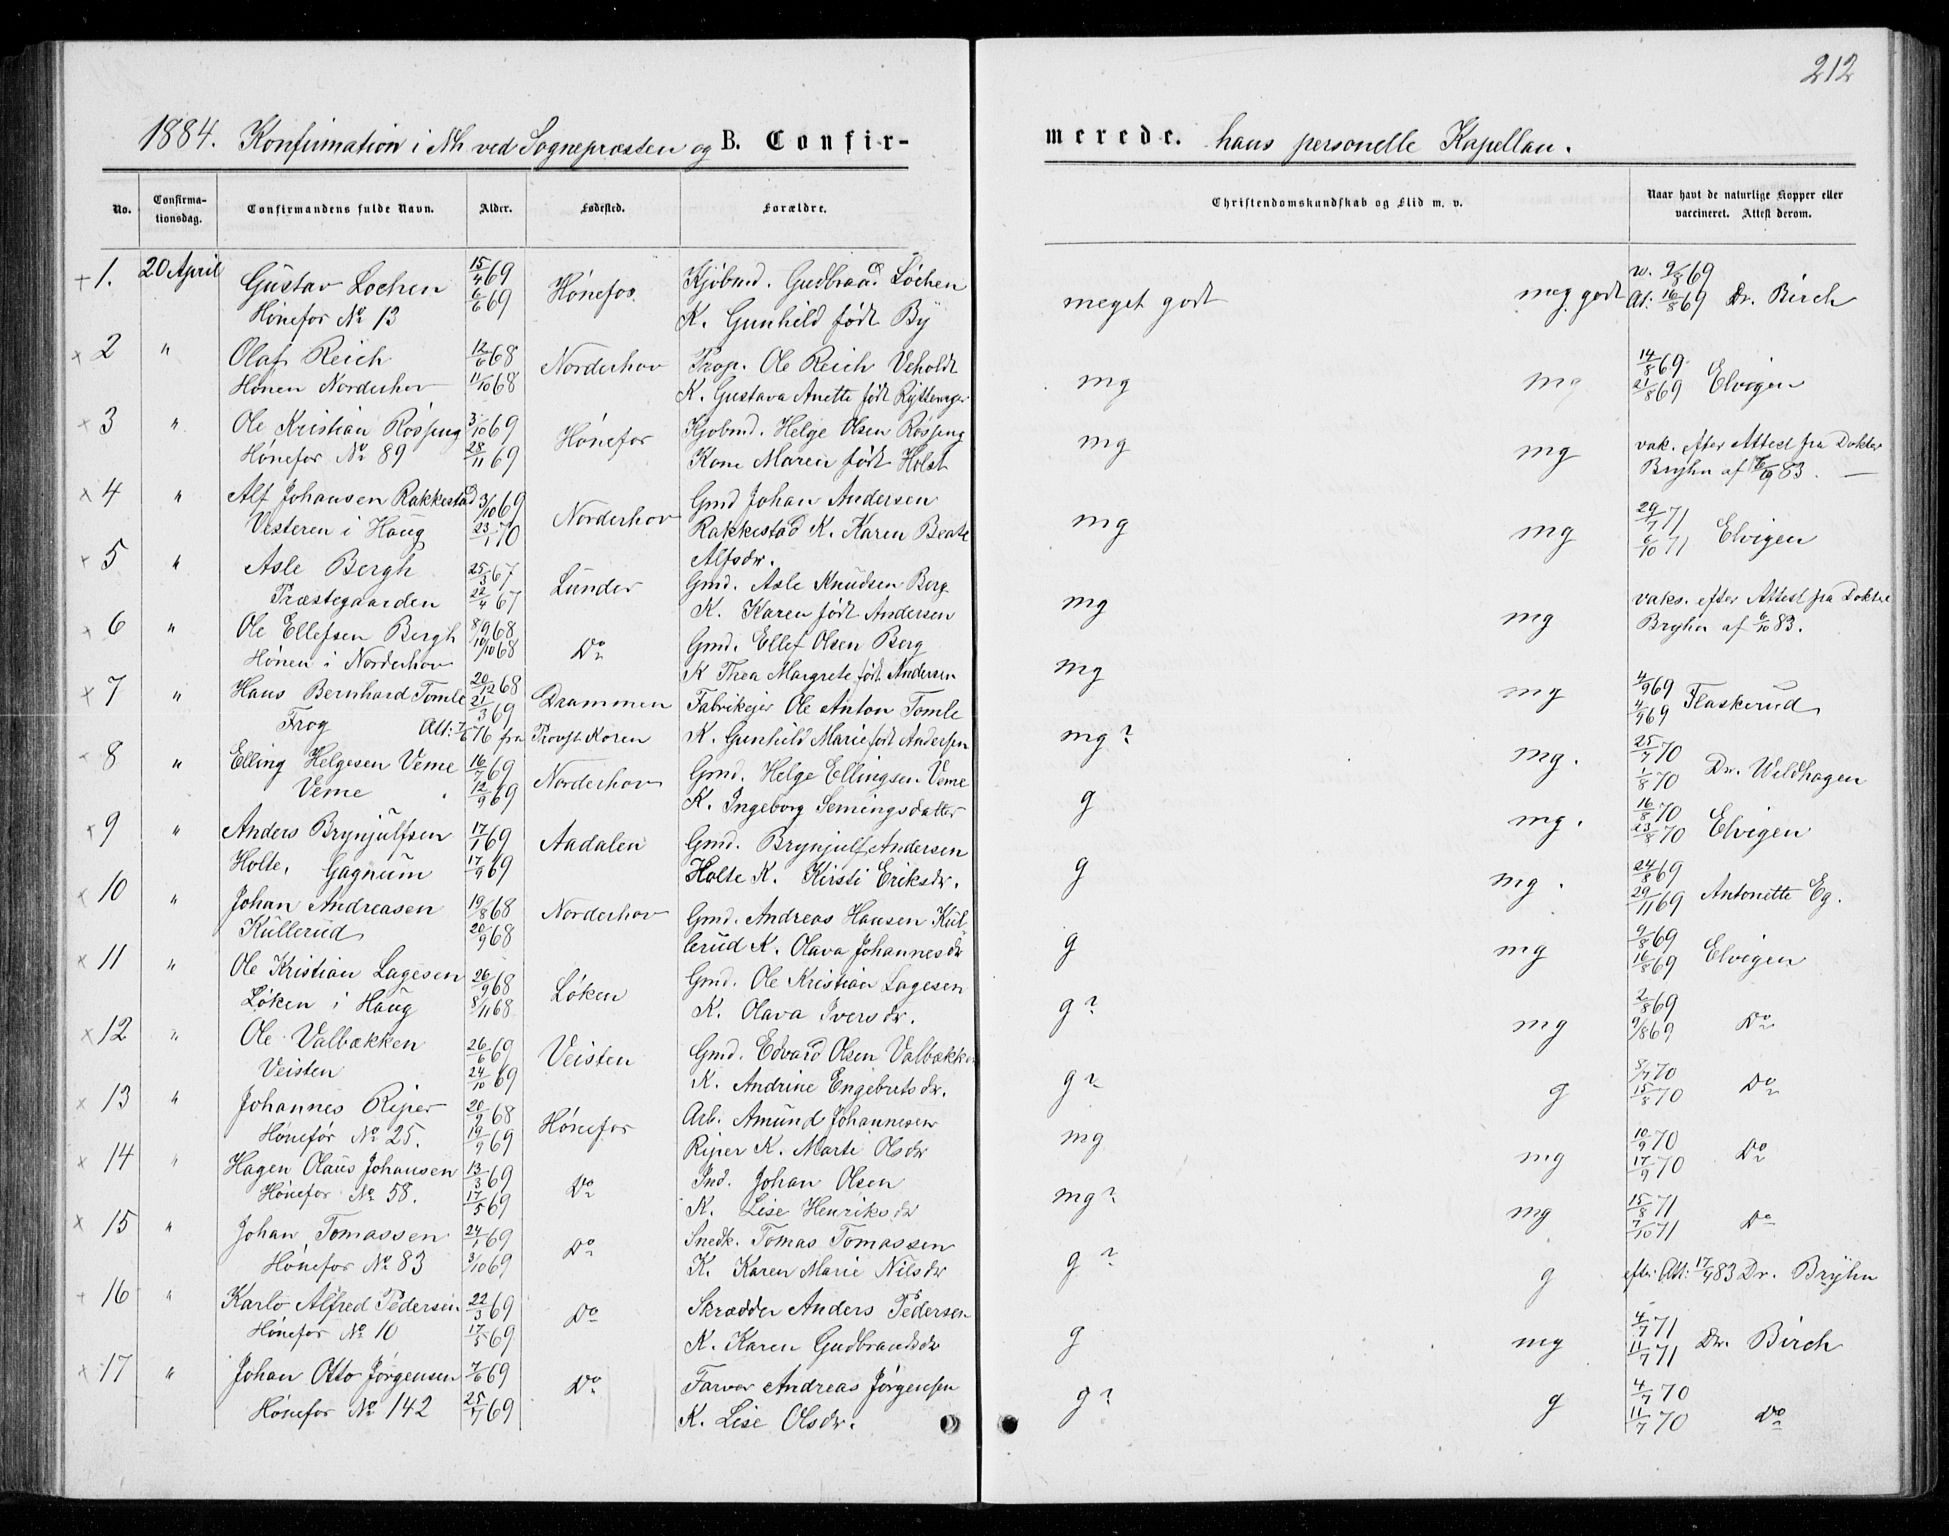 212
1884. Konfirmation i Nh ved Sognepresten og B. Confir-
merede. hans personelle Kapellan.
No. Confirma-tionsdag. Confirmandens fulde Navn. Alder. Fødested. Forældre. Christendomskundskab og Flid m. v. Naar havt de naturlige Kopper eller vaccineret. Attest derom.
+ 1. 20 April Gustav Lochen 15/4 69 Hønefos Kjøbmd. Gudbrand Løchen meget godt meg godt v. 9/8 69
Hønefos No 13 6/6 69 K. Gunhild født By At: 16/8 69 Dr. Birch
x 2 " Olaf Reich 12/6 68 Norderhov Prop. Ole Reich Veholdt mg mg 14/8 69
Hønen Norderhov 11/10 68 K. Gustava Anette født 21/8 69 Elvigen
x 3 " Ole Kristian Røssing 3/10 69 Hønefos Kjobmd. Helge Olsen Røssing mg mg vak. efter Attest fra Dokter
Hønefos No 89 28/11 69 Kone Maren født Holst Bryhn af 83. —
x 4 " Alf Johansen Rakkestad 3/10 69 Norderhov Gmd Johan Andersen mg mg 29/7 71
Vesteren i Haug 23/1 70 Rakkestad K. Karen Beate 6/10 71 Elvigen
Alfsdr.
x 5 " Asle Bergh 25/3 67 Lunder Gmd. Asle Knudsen Berg mg mg vaks. efter Attest fra Dokter
Præstegaarden 22/4 67 K. Karen født Andersen Bryhn af 6/10 83.
x 6 " Ole Ellefsen Bergh 8/9 68 Do Gmd. Ellef Olsen Berg mg mg 4/9 69
Hønen i Norderhov 10/10 68 K Thea Margrete født Andersen 4/9 69 Flaskerud
x 7 " Hans Bernhard Tomle 20/12 68 Drammen Fabrikejer Ole Anton Tomle mg? mg. 25/7 70
21/3 69
Frog Att: 7/6 76 fra Provst Koren K. Gunhild Marie født Andersen 1/8 70 Dr. Weldhagen
x 8 " Elling Helgesen Veme 16/7 69 Norderhov Gmd. Helge Ellingsen Veme g mg. 16/8 70
Veme 12/9 69 K. Ingeborg Semingsdatter 23/8 70 Elvigen
x 9 " Anders Brynjulfsen 17/1 69 Aadalen Gmd. Brynjulf Andersen g mg. 24/8 69
Holte, Gagnum 17/9 69 Holte K. Kirsti Eriksdr. 29/11 69 Antonette Eg.
x 10 " Johan Andreasen 19/8 68 Norderhov Gmd. Andreas Hansen Kul- g mg 9/8 69
Kullerud 20/9 68 lerud K. Olava Johannesdr 16/8 69 Elvigen
x 11 " Ole Kristian Lagesen 26/9 68 Løken Gmd. Ole Kristian Lagesen g? mg 2/8 69
Løken i Haug 8/11 68 K. Olava Iversdr. 9/8 69 Do
x 12 " Ole Valbækken 26/6 69 Veisten Gmd. Edvard Olsen Valbækken g? g 8/7 70
Veisten 24/10 69 K. Andrine Engebretsdr. 15/8 70 Do
x 13 " Johannes Riper 20/9 68 Hønefos Arb. Amund Johannesen mg mg 10/9 70
Hønefos No 25. 19/9 69 Riper K. Marte Olsdr 17/9 70 Do
x 14 " Hagen Olaus Johansen 13/3 69 Do Ind. Johan Olsen mg? mg 15/8 71
Hønefos No 58. 17/5 69 K. Lise Henriksdr 7/10 71 Do
x 15 " Johan Tomassen 24/1 69 Do Snedk. Tomas Tomassen g? g efter Att: 17/9 83 Dr. Bryhn
Hønefos No 83 3/10 69 K. Karen Marie Nilsdr
x 16 " Karlo Alfred Pedersen 22/3 69 Do Skrædder Anders Pedersen g mg 4/7 71
Hønefos No 10 17/5 69 K. Karen Gudbrandsdr 11/7 71 Dr. Birch
x 17 " Johan Otto Jørgensen 7/6 69 Do Farver Andreas Jørgensen g? g 4/7 70
Hønefos No 142 25/7 69 K. Lise Olsdr. 11/7 70 Do